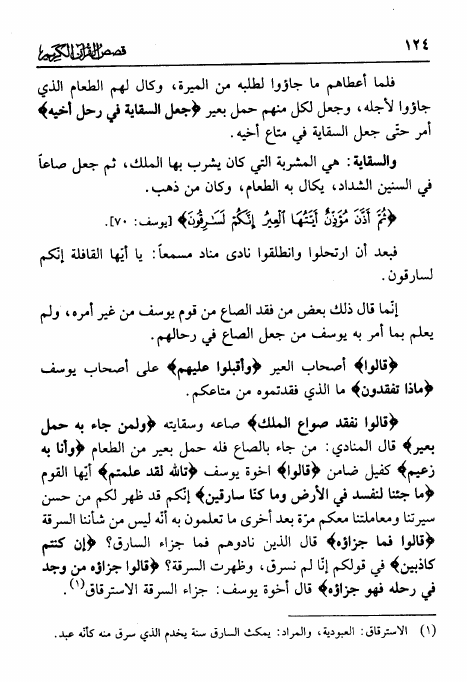 ١٢٤ قصص القرآن الكريم
فلما أعطاهم ما جاؤوا لطلبه من الميرة، وكال لهم الطعام الذي
جاؤوا لأجله، وجعل لكل منهم حمل بعير ﴿جعل السقاية في رحل أخيه﴾
أمر حتّى جعل السقاية في متاع أخيه.
والسقاية: هي المشربة التي كان يشرب بها الملك، ثم جعل صاعاً
في السنين الشداد، يكال به الطعام، وكان من ذهب.
﴿ثُمَّ أَذَّنَ مُؤَذِّنٌ أَيَّتُهَا الْعِيرُ إِنَّكُمْ لَسَارِقُونَ﴾ [يوسف: ٧٠].
فبعد أن ارتحلوا وانطلقوا نادى مناد مسمعاً: يا أيّها القافلة إنّكم
لسارقون.
إنّما قال ذلك بعض من فقد الصاع من قوم يوسف من غير أمره، ولم
يعلم بما أمر به يوسف من جعل الصاع في رحالهم.
﴿قالوا﴾ أصحاب العير ﴿وأقبلوا عليهم﴾ على أصحاب يوسف
﴿ماذا تفقدون﴾ ما الذي فقدتموه من متاعكم.
﴿قالوا نفقد صواع الملك﴾ صاعه وسقايته ﴿ولمن جاء به حمل
بعير﴾ قال المنادي: من جاء بالصاع فله حمل بعير من الطعام ﴿وأنا به
زعيم﴾ كفيل ضامن ﴿قالوا﴾ اخوة يوسف ﴿تالله لقد علمتم﴾ أيّها القوم
﴿ما جئنا لنفسد في الأرض وما كنّا سارقين﴾ إنّكم قد ظهر لكم من حسن
سيرتنا ومعاملتنا معكم مرّة بعد أخرى ما تعلمون به أنّه ليس من شأننا السرقة
﴿قالوا فما جزاؤه﴾ قال الذين نادوهم فما جزاء السارق؟ ﴿إن كنتم
كاذبين﴾ في قولكم إنّا لم نسرق، وظهرت السرقة؟ ﴿قالوا جزاؤه من وجد
في رحله فهو جزاؤه﴾ قال أخوة يوسف: جزاء السرقة الاسترقاق(١).
(١) الاسترقاق: العبودية، والمراد: يمكث السارق سنة يخدم الذي سرق منه كأنّه عبد.